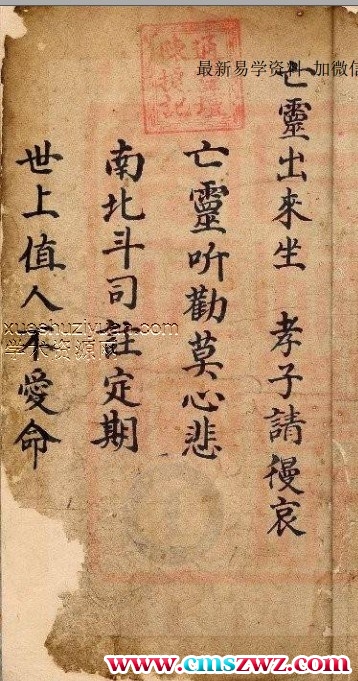 最新易学资料 加微信
亡靈出來坐 孝子請慢哀
亡靈听勸莫心悲
南北斗司註定期
世上值人不愛命
学术资源
www.cmszwz.com